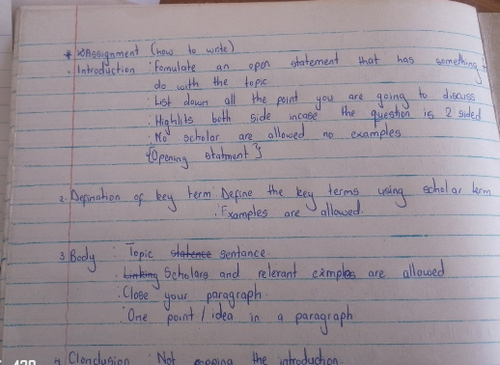 * Assignment (how to write)
. Introduction : Fomulate an open statement that has something to
do with the topic
: List down all the point you are going to discuss
: Highlits both side incase the question is 2 sided
: No scholar are allowed no examples
{Opening statment}
2. Defination of key term : Define the key terms using scholar term
: Examples are allowed.
3 Body : Topic statence sentence.
. Linking Scholars and relevant exmples are allowed
. Close your paragraph.
: One point / idea in a paragraph
Clonclusion : Not copping the introduction.